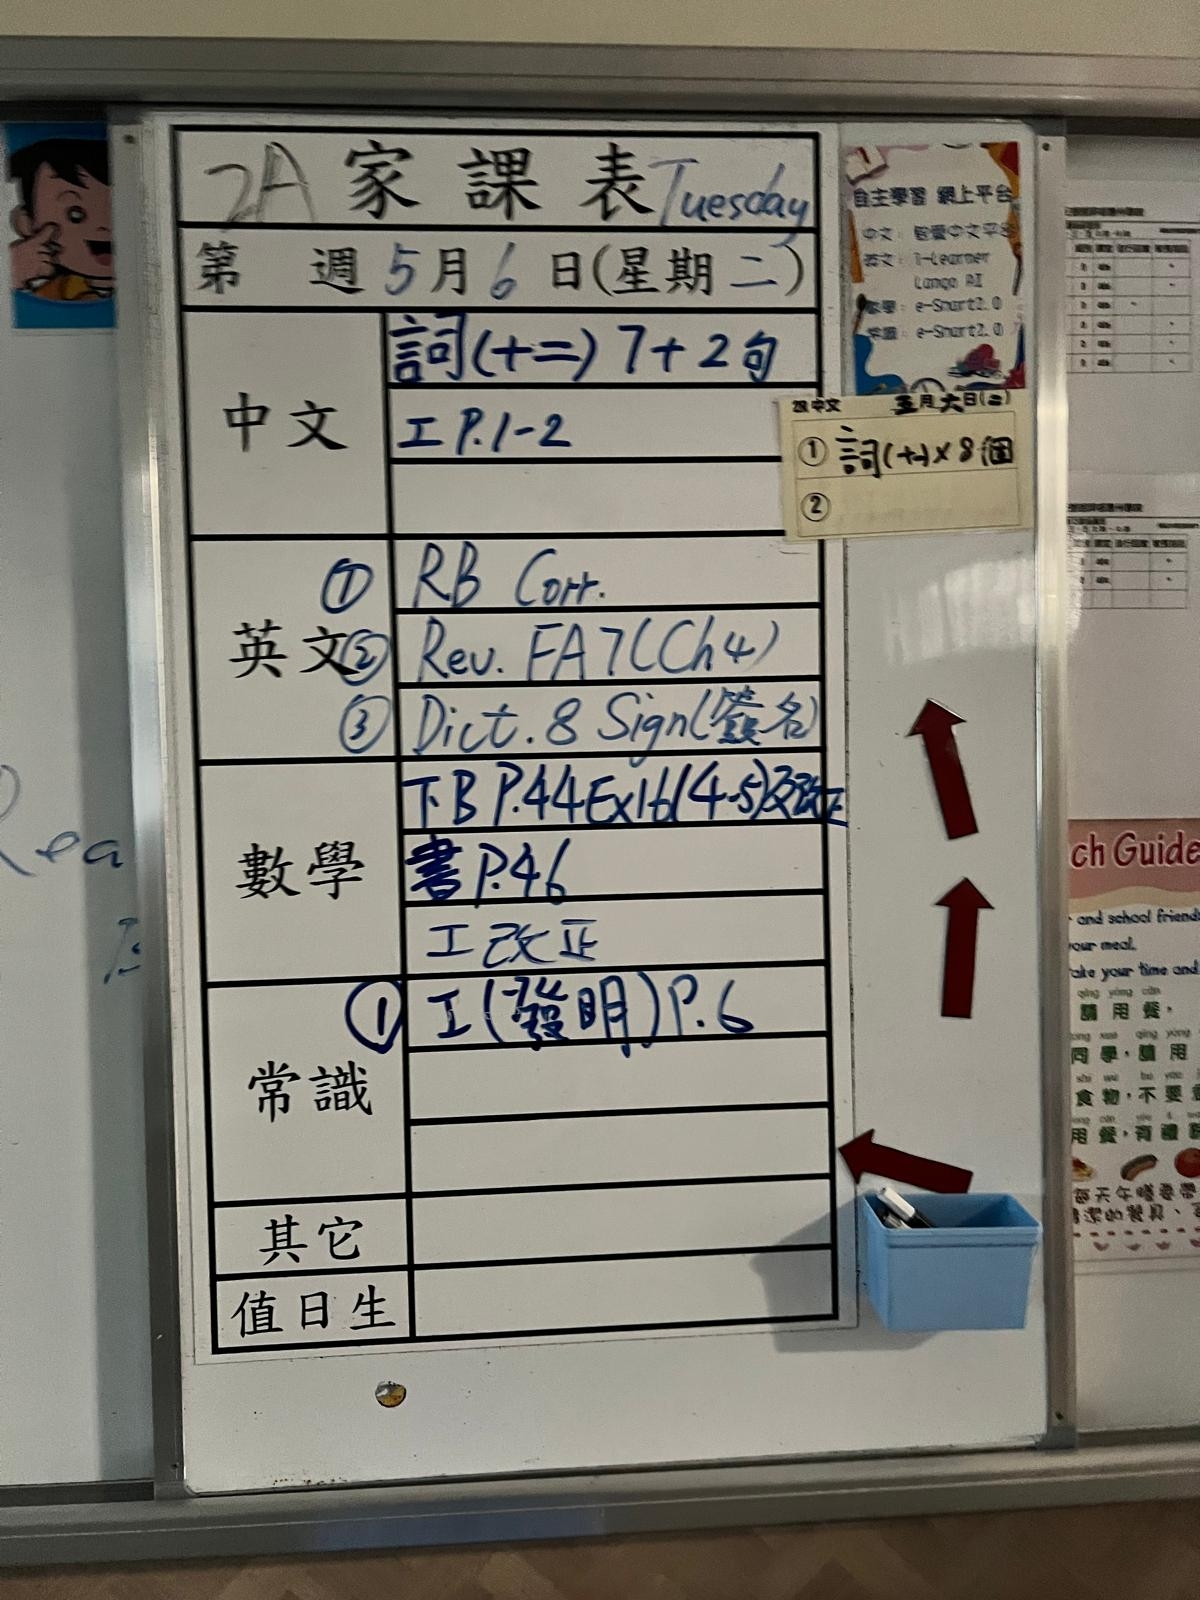 2A 家課表 Tuesday
第 週 5月6日(星期二)
中文
詞(十二) 7+2句
工 P.1-2
英文
① RB Corr.
② Rev. FA7(Ch4)
③ Dict. 8 Sign(簽名)
數學
下B P.44Ex16(4-5)及改正
書 P.46
工改正
常識
① 工(發明)P.6
其它
值日生
自主學習 網上平台
中文:
英文: i-Learner
Lango AI
數學: e-Smart2.0
常識: e-Smart2.0
中文 五月六日(二)
① 詞(十)×8個
②
Rea
ch Guide
and school friends
your meal.
take your time and
qǐng yòng cān
請用餐,
同學,請用
食物,不要
用餐,有禮
每天午膳要帶
潔的餐具、